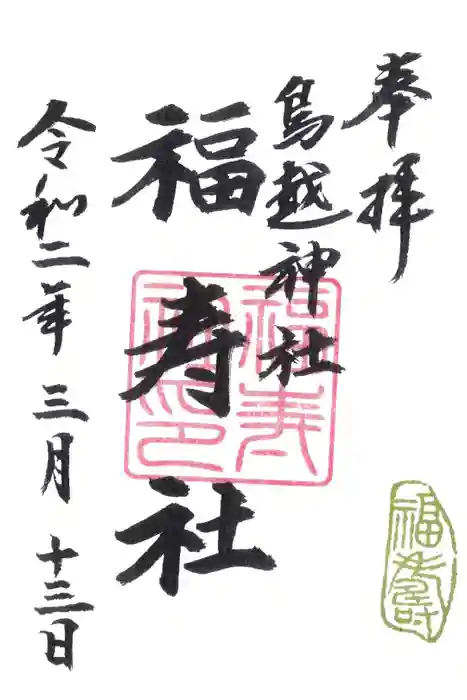 奉拝
鳥越神社
福寿社
令和二年 三月 十三日
福寿社印
福壽